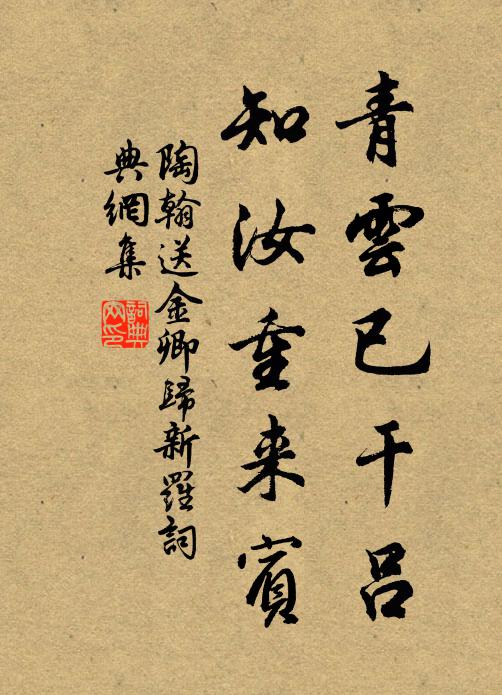 青雲已干呂
知汝重来賓
陶翰送金卿歸新羅詞
典網集
詞典網印